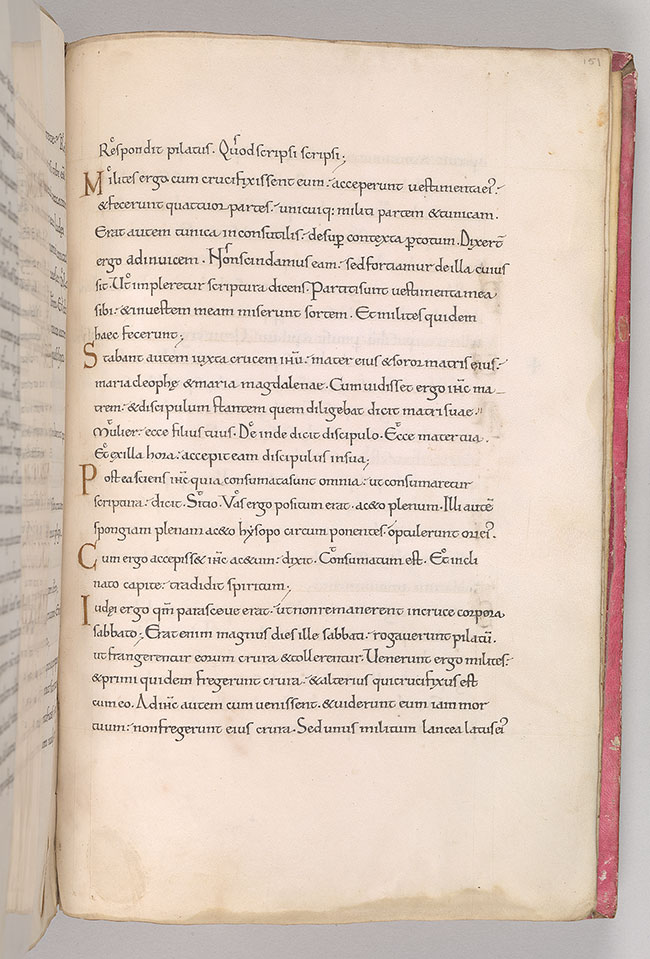 151
Respondit pilatus. Quod scripsi scripsi;
Milites ergo cum crucifixissent eum. acceperunt uestimenta ei'.
& fecerunt quattuor partes. unicuiq; militi partem & tunicam.
Erat autem tunica inconsutilis. desup contexta p totum. Dixert̄
ergo adinuicem. Non scindamus eam. sed sortiamur de illa cuius
sit. Ut impleretur scriptura dicens. Partiti sunt uestimenta mea
sibi. & in uestem meam miserunt sortem. Et milites quidem
haec fecerunt;
Stabant autem iuxta crucem ihu. mater eius & soror matris eius.
maria cleophę & maria magdalenae. Cum uidisset ergo ihc ma-
trem. & discipulum stantem quem diligebat dicit matri suae.
Mulier. ecce filius tuus. De inde dicit discipulo. Ecce mater tua.
Et ex illa hora. accepit eam discipulus in sua;
Postea sciens ihc quia consumata sunt omnia. ut consumaretur
scriptura. dicit. Sitio. Vas ergo positum erat. ac&o plenum. Illi autē
spongiam plenam ac&o hysopo circum ponentes. optulerunt ori ei'.
Cum ergo accepiss& ihc ac&um. dixit. Consumatum est. Et incli
nato capite. tradidit spiritum;
Iudęi ergo qm̄ parasceue erat. ut non remanerent in cruce corpora
sabbato; Erat enim magnus dies ille sabbati. rogauerunt pilatū.
ut frangerentur eorum crura & tollerentur. Uenerunt ergo milites.
& primi quidem fregerunt crura. & alterius qui crucifixus est
cum eo. Ad ihc autem cum uenissent. & uiderunt eum iam mor
tuum. non fregerunt eius crura. Sed unus militum lancea latus ei'